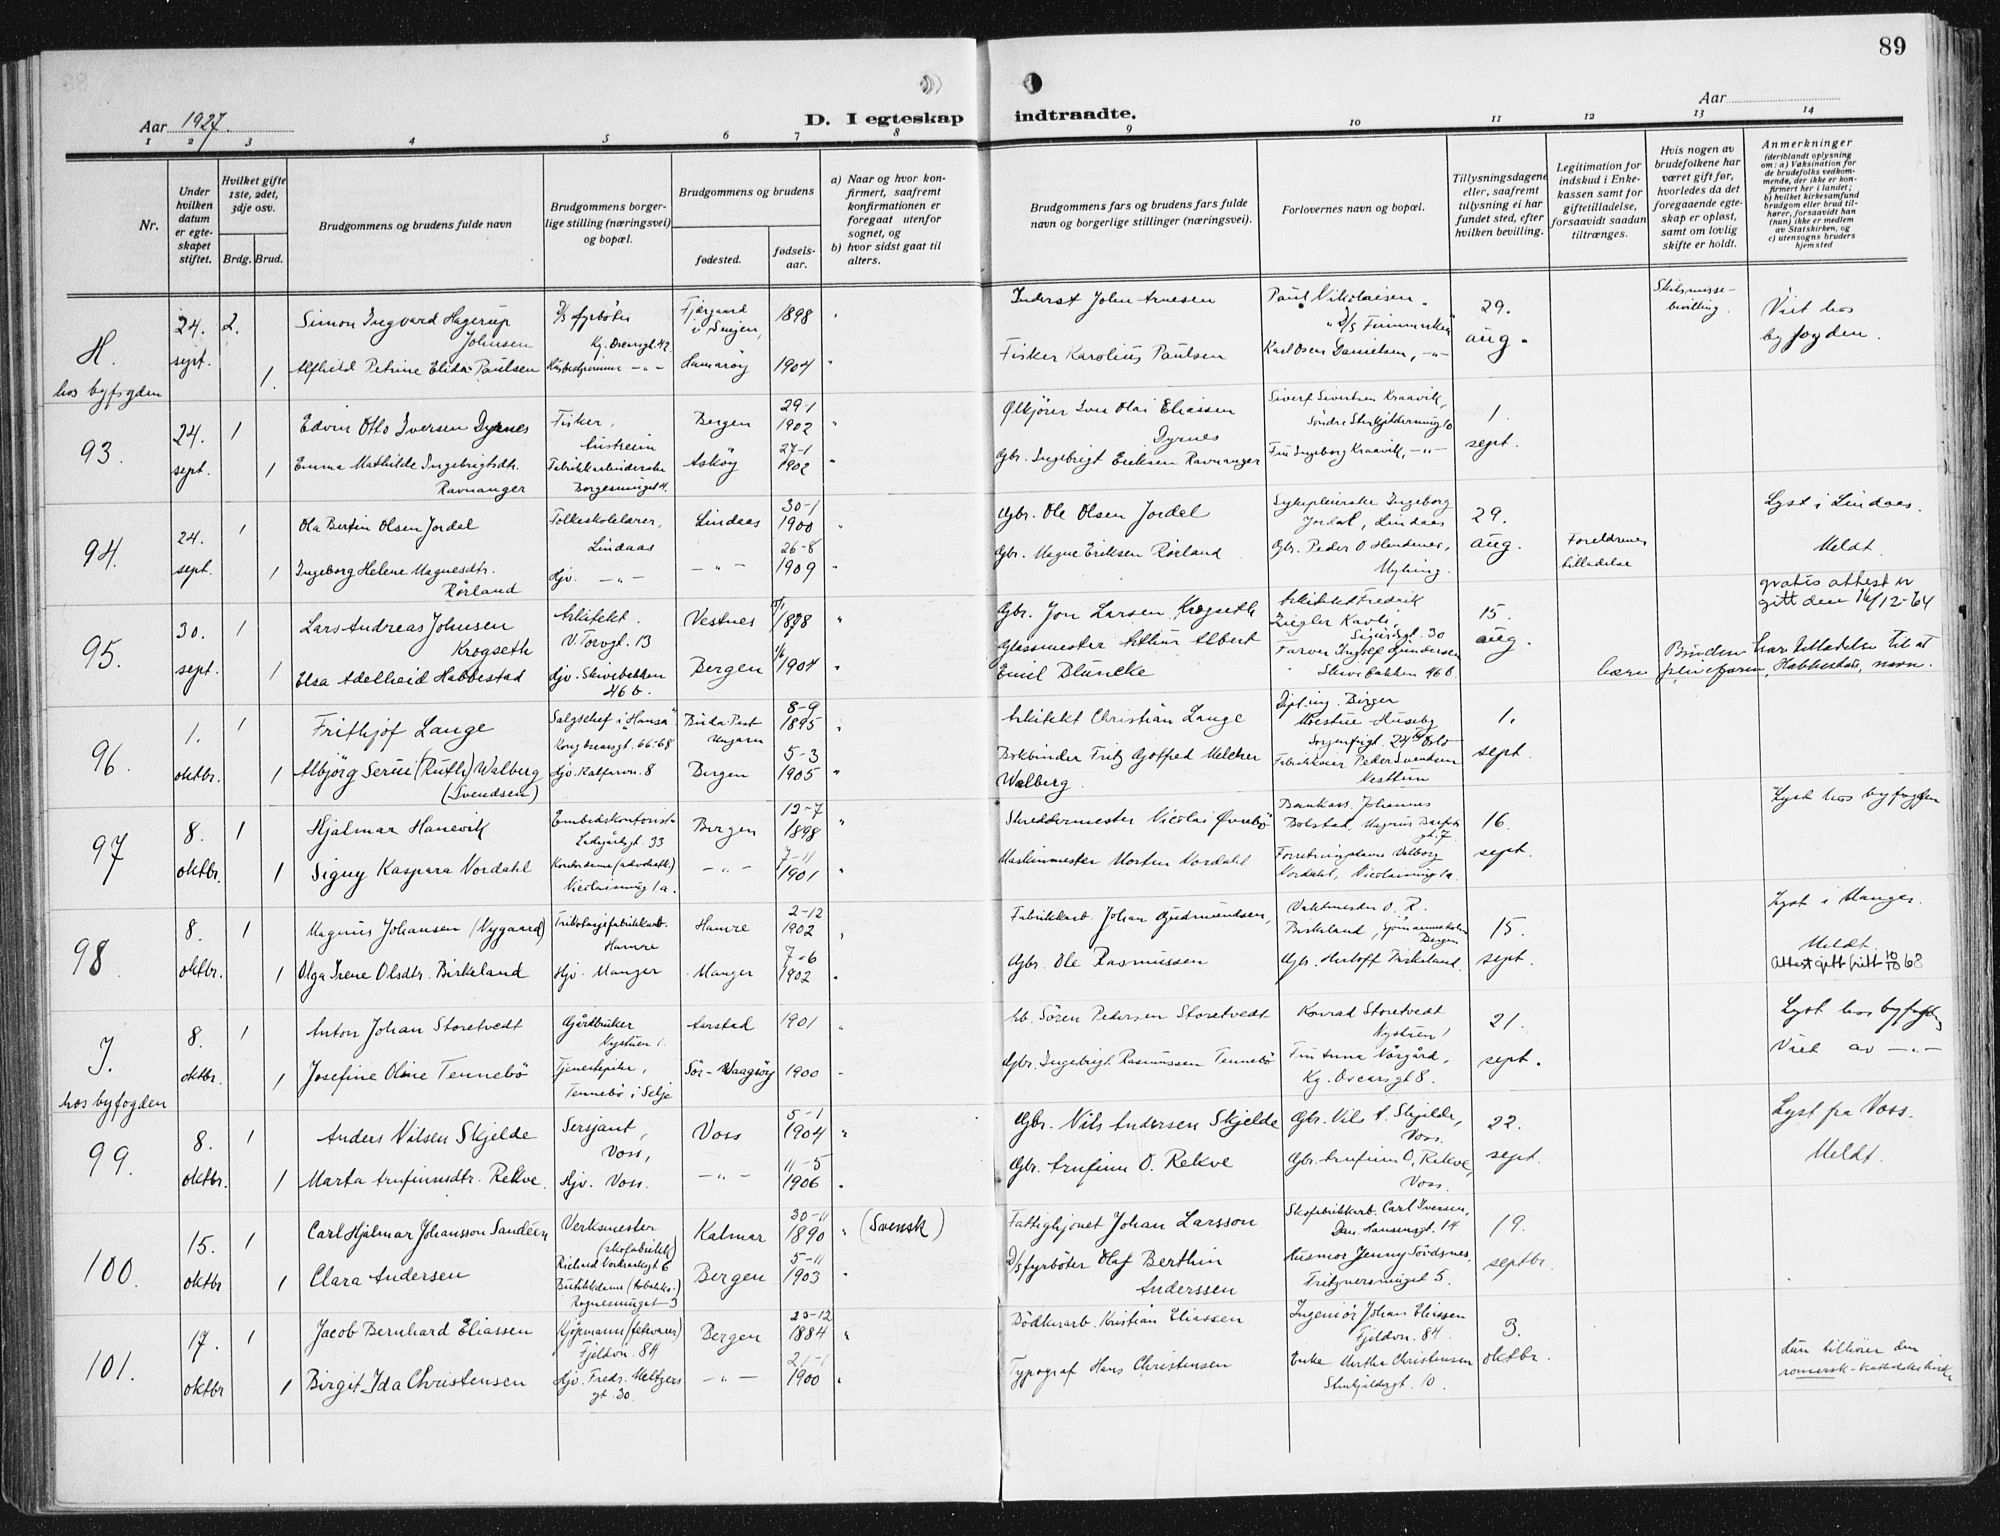 89
Aar 1927.
D. I egteskap indtraadte.
Aar
1 2 3 4 5 6 7 8 9 10 11 12 13 14
Nr.
Under hvilken datum er egteskapet stiftet.
Hvilket gifte 1ste, 2det, 3dje osv.
Brdg. Brud.
Brudgommens og brudens fulde navn
Brudgommens borgerlige stilling (næringsvei) og bopæl.
Brudgommens og brudens
fødested.
fødselsaar.
a) Naar og hvor konfirmert, saafremt konfirmationen er foregaat utenfor sognet, og
b) hvor sidst gaat til alters.
Brudgommens fars og brudens fars fulde navn og borgerlige stillinger (næringsvei).
Forlovernes navn og bopæl.
Tillysningsdagene eller, saafremt tillysning ei har fundet sted, efter hvilken bevilling.
Legitimation for indskud i Enkekassen samt for giftetilladelse, forsaavidt saadan tiltrænges.
Hvis nogen av brudefolkene har været gift før, hvorledes da det foregaaende egteskap er opløst, samt om lovlig skifte er holdt.
Anmerkninger
(deriblandt oplysning om: a) Vaksination for de brudefolks vedkommende, der ikke er konfirmert her i landet; b) hvilket kirkesamfund brudgom eller brud tilhører, forsaavidt han (hun) ikke er medlem av Statskirken, og c) utensogns bruders hjemsted
H.
hos byfogden
24. sept.
2.
Simon Ingvard Hagerup Johnsen
D/s fyrböter
Kg. Oscarsgt. 42
1898
Inderst John Arnesen
Paul Nikolaisen
D/S Finmarken
29. aug.
Skilsmissebevilling
Viet hos byfogden.
1.
Alfhild Petrine Elida Paulsen
Hamaröy
1904
Fisker Karolius Paulsen
Karl Oscar Danielsen, -"-
93.
24. sept.
1
Edvin Otto Iversen Dyrnes
Fisker,
Bergen
29-1 1902
Oljkjører Iver Olai Eliassen Dyrnes
Sivert Sivertsen Kraavik,
1. sept.
1
Emma Mathilde Ingebrigtsdtr. Ravnanger
Fabrikkarbeiderske
Asköy
27-1 1902
Gbr. Ingebrigt Eriksen Ravnanger
Frk Ingeborg Kraavik, -"-
94.
24. sept.
1
Ola Bertin Olsen Jordal
Folkeskolelærer, Lindaas
Lindaas
30-1 1900
Gbr. Ole Olsen Jordal
Sykepleierske Ingeborg Jordal, Lindaas
29. aug.
Lyst i Lindaas.
1
Ingeborg Helene Magnesdtr. Rörland
Hjv. -"-
-"-
26-8 1909
Gbr. Magne Eriksen Rörland
Gbr. Peder O Hendenes, Myking.
Foreldrenes tilladelse
Meldt.
gratis attest er gitt den 16/12-64
95.
30. sept.
1
Lars Andreas Johnsen Krogseth
Arkitekt. V. Torvgt. 13
Vestnes
1898
Gbr. Jon Larsen Krogseth
Arkitekt Fredrik Ziegler Kavli, Sigurdsgt. 30
15. aug.
1
Elsa Adelheid Habbestad
Hjv. Skivebakken 46 b.
Bergen
1/6 1904
Glassmester Arthur Albert Emil Bluncke
Farver Ingolf Gundersen Skivebakken 46 b.
Bruden har tilladelse til at bære pleiefaren, Habbestads, navn.
96.
1. oktbr.
1
Frithjof Lange
Salgschef i "Hansa" Kong Oscarsgt. 66-68
Buda-Pest Ungarn
8-9 1895
Arkitekt Christian Lange
Dipl. ing. Birger Huseby Sorgenfrigt. 24 Oslo
1. sept.
1
Albjörg Serine (Ruth) Walberg (Svendsen)
Hjv. Kalfarvn. 8
Bergen
5-3 1905
Bokbinder Fritz Gotfred Melcher Walberg.
Fabrikkeier Peder Svendsen Nesttun
97
8. oktbr.
1
Hjalmar Hanevik
Embedskontorist Ladegårdsgt. 33
Bergen
12-7 1898
Skreddermester Nicolai Øvrebö
Bankass. Johannes Bolstad, Magnus Barfots gt. 7
16. sept.
Lyst hos byfogden
1
Signy Kaspara Vordahl
Kontordame (advokatk.) Nicolaismug 1 a.
-"-
7-11 1901
Maskinmester Morten Vordahl
Valborg Vordahl, Nicolaismug 1 a.
98
8. oktbr.
1
Magnus Johansen (Nygaard)
Trikotagefabrikkarb. Hamre
Hamre
2-12 1902
Fabrikkarb. Johan Gudmundsen,
Vaktmester O. R. Birkeland, Sjømannsskolen Bergen
15. sept.
Lyst i Manger.
1
Olga Irene Olsdtr. Birkeland
Hjv. Manger
Manger
7-6 1902
Gbr. Ole Rasmussen
Gbr. Herloff Birkeland.
Meldt.
Attest gitt fritt 10/10 68
J.
hos byfogden
8. oktbr.
1
Anton Johan Storetvedt
Gårdbruker Nystuen 1.
Aarstad
1901
Gb. Sören Pedersen Storetvedt
Konrad Storetvedt Nystuen 1
21. sept.
Lyst hos byfogden
1
Josefine Oline Tennebö
Tjenestepike, Tennebö i Selje
Sör-Vaagsöy
1900
Gbr. Ingebrigt Rasmussen Tennebö
Frk Anna Vårgård, Kg. Oscarsgt 8.
Viet av -"-
99.
8. oktbr.
1
Anders Nilsen Skjelde
Sersjant, Voss,
Voss
5-1 1904
Gbr. Nils Andersen Skjelde
Gbr. Nils A. Skjelde, Voss.
22. sept.
Lyst fra Voss.
1
Marta Arnfinnsdtr. Rekve.
Hjv. Voss.
-"-
11-5 1906
Gbr. Arnfinn O. Rekve
Gbr. Arnfinn O. Rekve, Voss.
Meldt.
100.
15. oktbr
1
Carl Hjalmar Johansson Sandéen
Verksmester (skofabrikk)
Kalmar
30-11 1890
(Svensk)
Fattighjonet Johan Larsson
Skofabrikkarb. Carl Iversen, Dan. Hansensgt. 14
19. septbr.
1
Clara Andersen
Bergen
5-11 1903
D/s fyrböter Olaf Berthin Anderssen
Husmor Jenny Sövdsnes, Fritznersmuget 5.
101.
17. oktbr
1
Jacob Bernhard Eliassen
Kjöpmann (fetevarer) Fjeldvn. 84
Bergen
1884
Dödharb. Kristian Eliassen
Ingeniör Johan Eliassen Fjeldvn. 84.
3. oktbr.
1
Birgit Ida Christensen
Hjv. Fredr. Meltzers gt. 30.
-"-
21-1 1900
Typograf Hans Christensen
Enke Martha Christensen Steinkjeldersgt. 10.
hun tilhører den romersk-katholske kirke